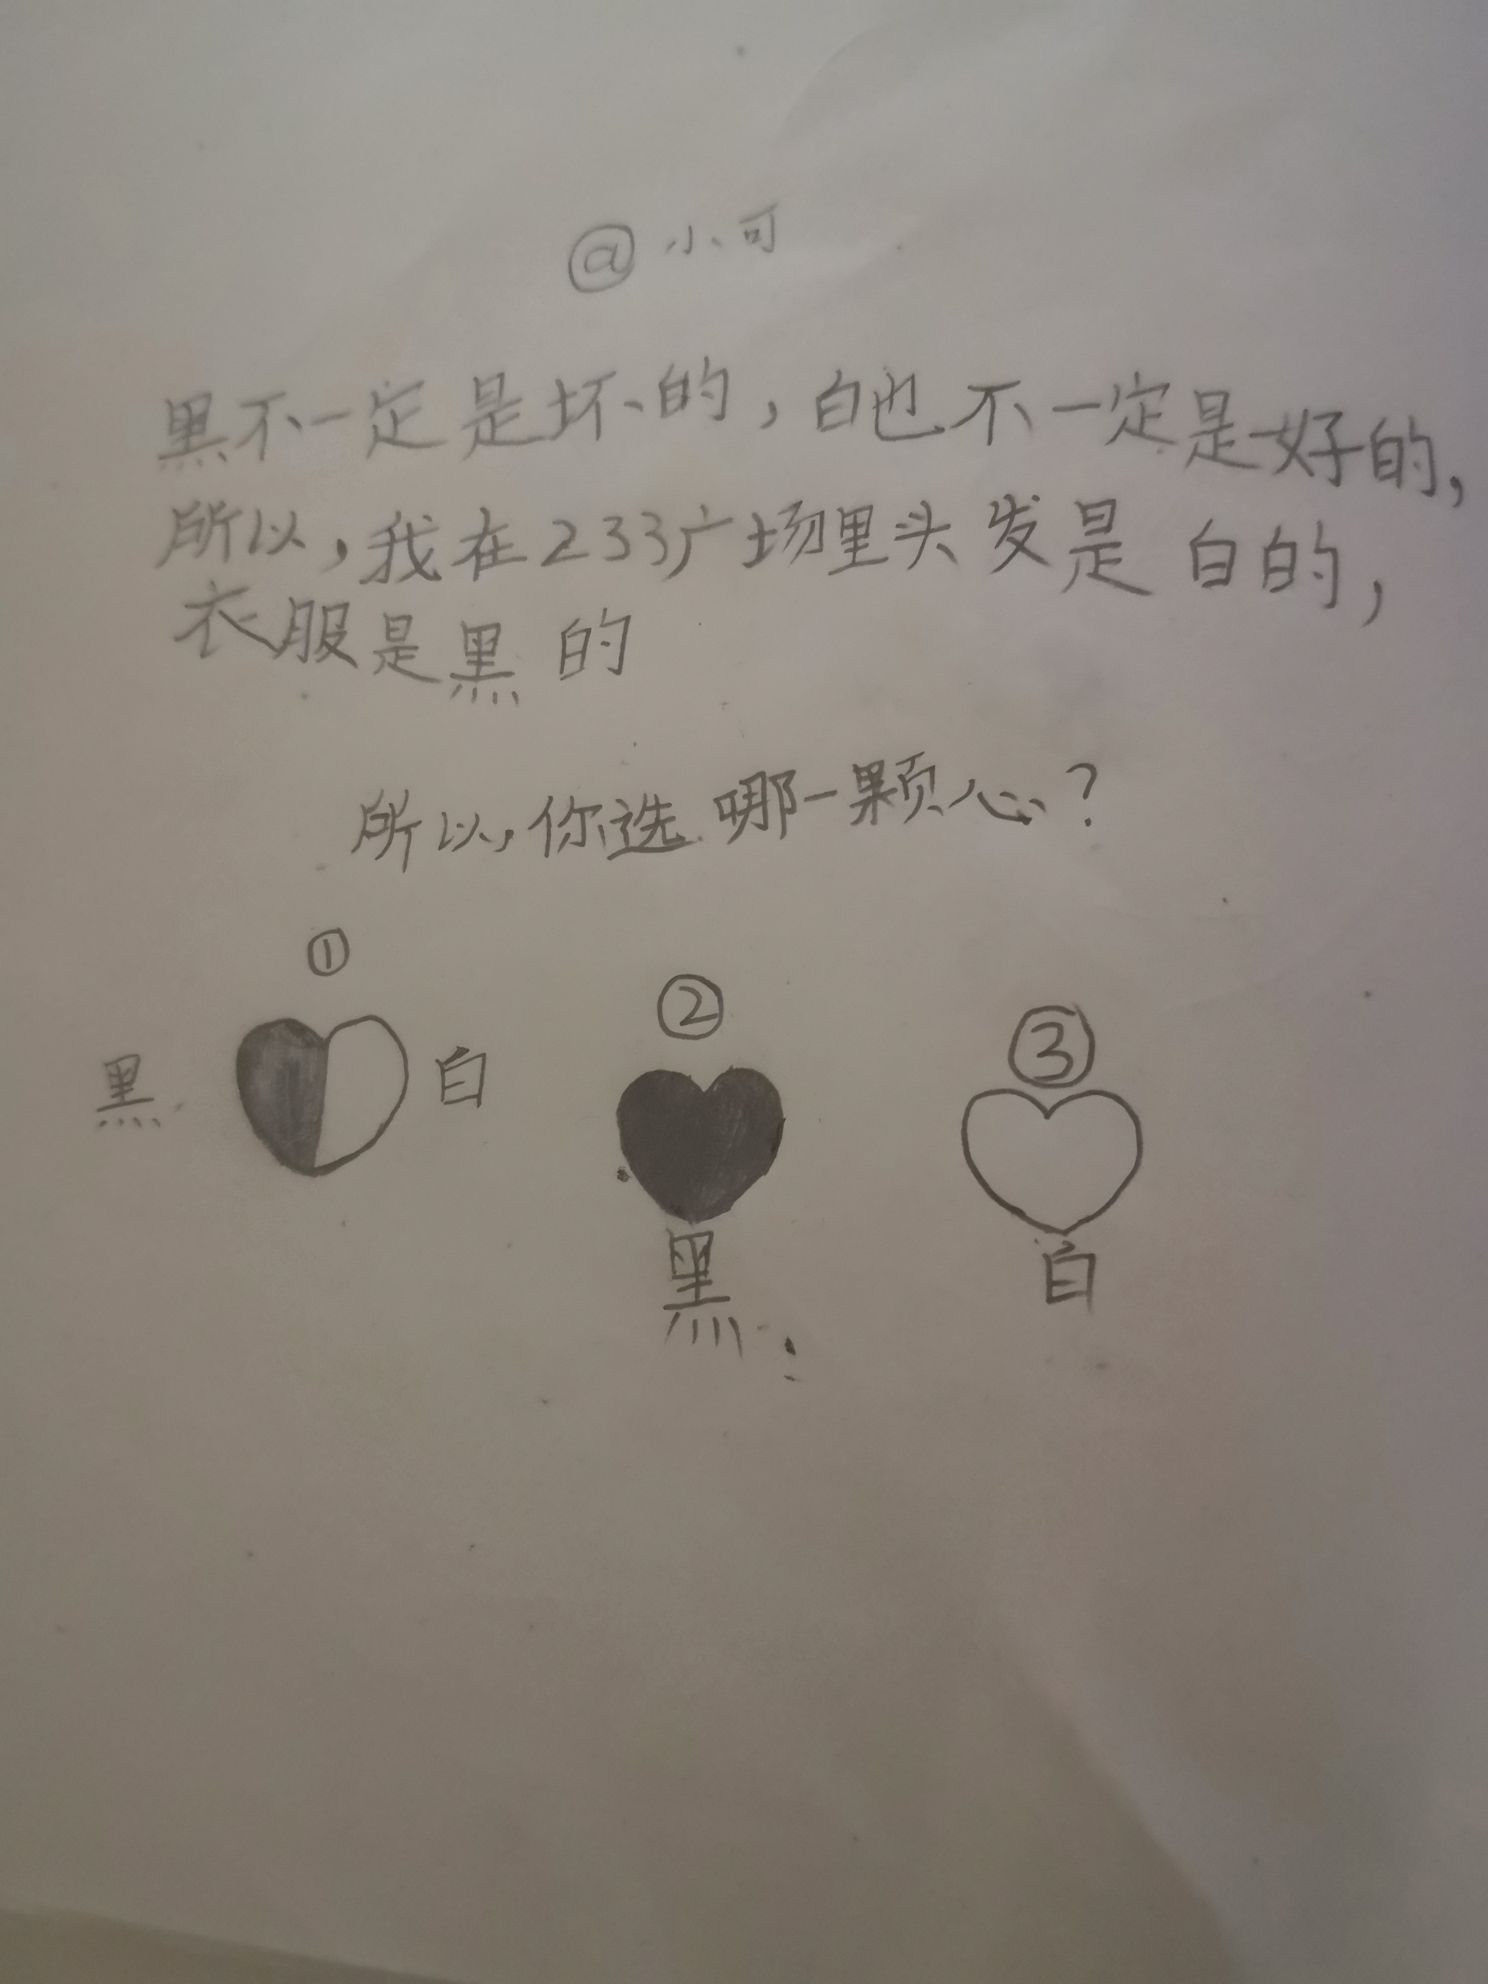 @小可
黑不一定是坏的，白也不一定是好的，
所以，我在233广场里头发是白的，
衣服是黑的
所以，你选哪一颗心？
① ② ③
黑 白
黑 白